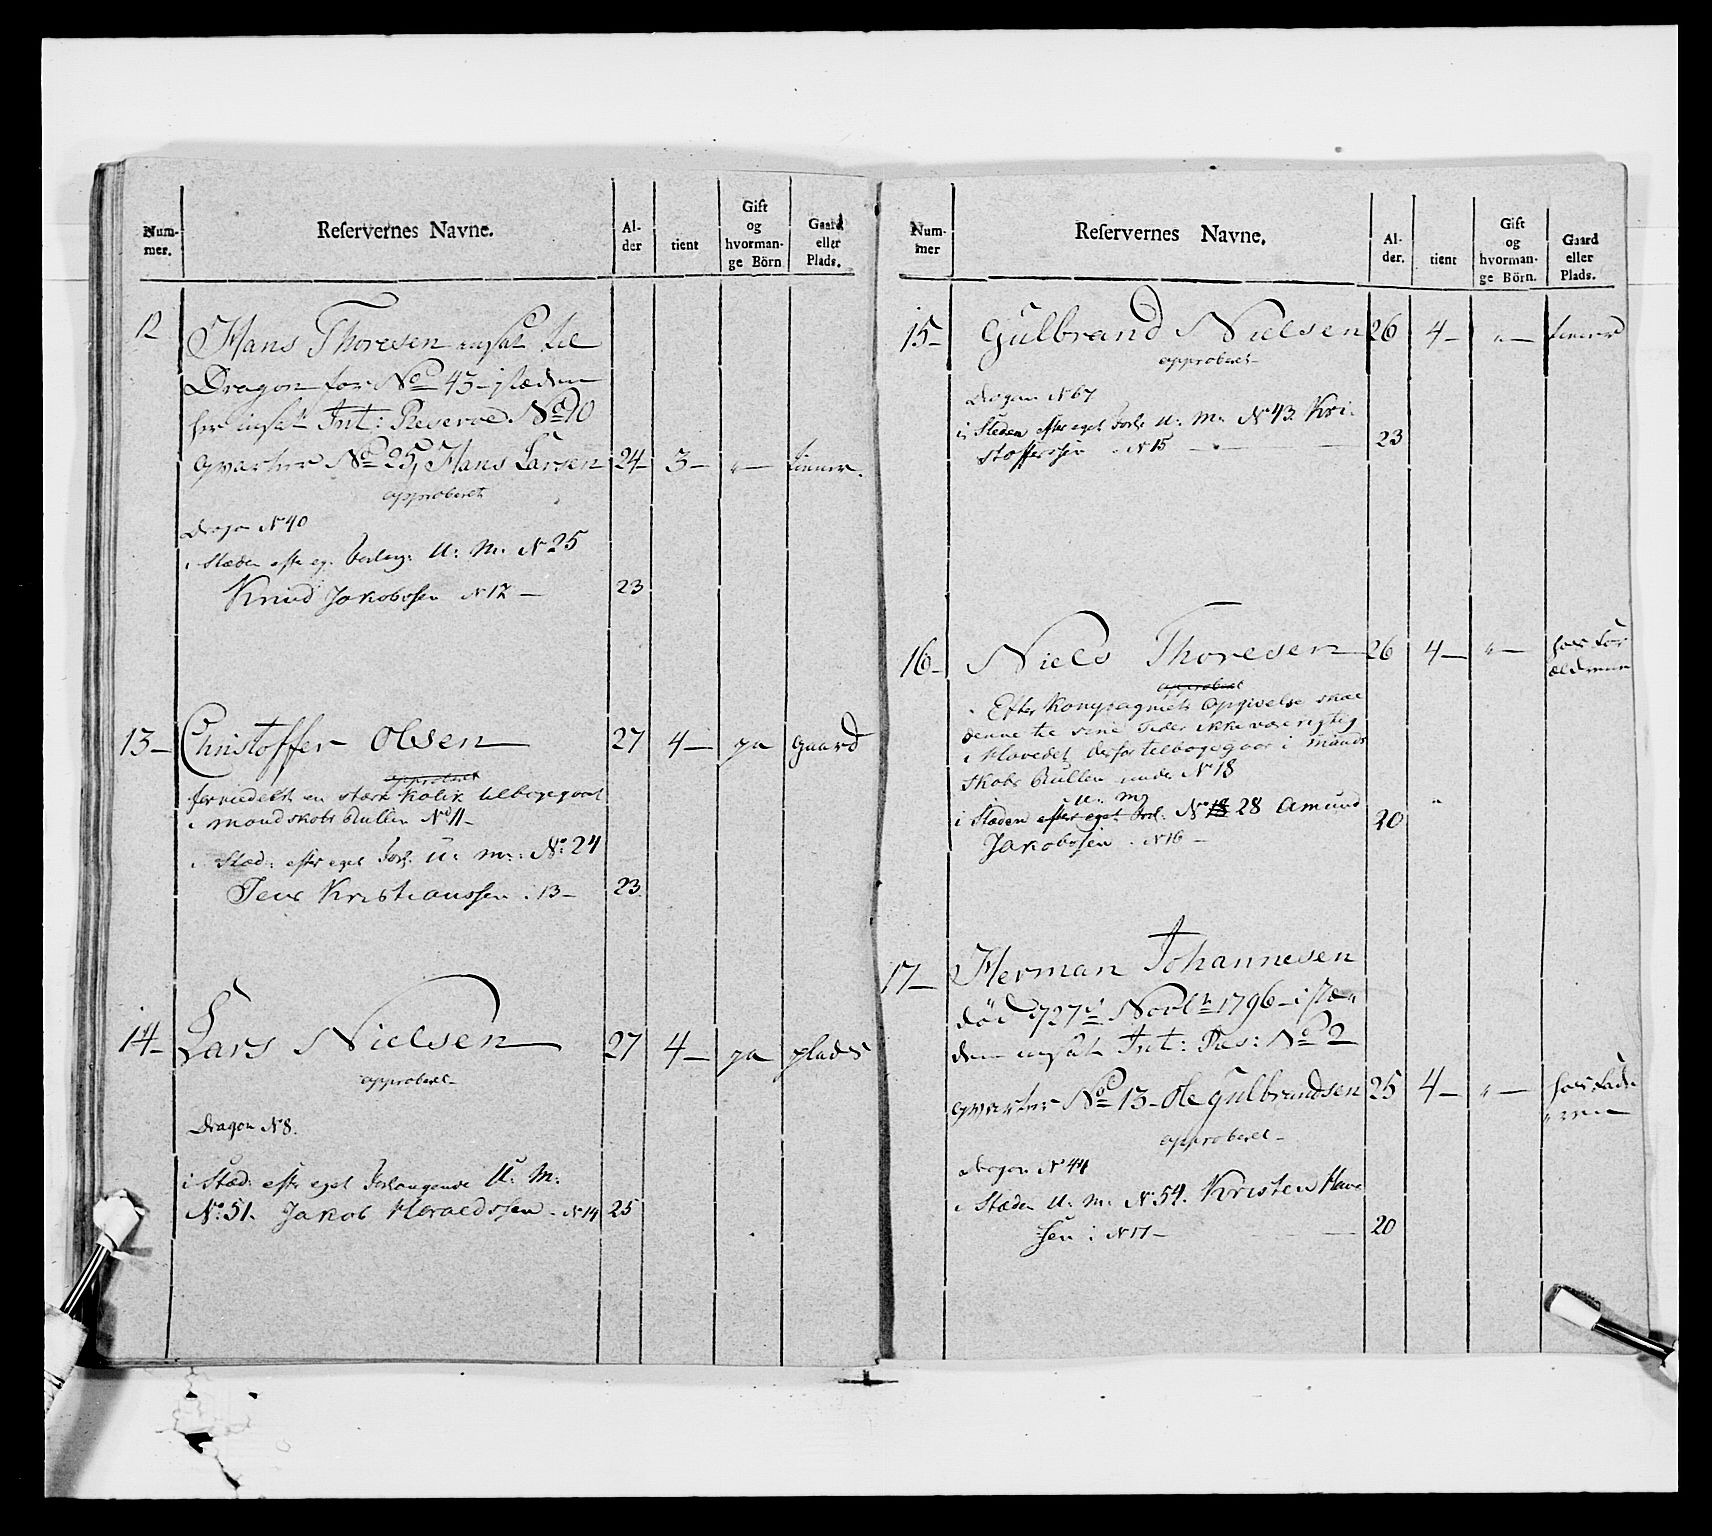 Num-
mer.
Reservernes Navne.
Al-
der
tient
Gift
og
hvorman-
ge Börn
Gaard
eller
Plads.
12
Hans Thoresen ansat til
Dragon for No 43 - i stæden
her ansat Int: Reserve No 10
qvarter No 25, Hans Larsen 24 3 — „ — tiener.
approberet
Dragon No 40
i Stæden efter eg. Forlang: U: M: No 25
Knud Jakobssen No 12 — 23
13 — Christoffer Olsen 27 4 — ja gaard
approberet
formedelst en stærk Kolik tilbagegaaet
i Mandskabs Rullen No 11 —
i Stæd: efter eget Forl: U: M: No: 24
Jens Kristianssen . 13 — 23
14 — Lars Nielsen 27 4 — ja plads
approberet
Dragon No 8.
i Stæd: efter eget Forlangende U: M:
No: 51. Jakob Heraldssen . No 14 25
Num-
mer
Reservernes Navne.
Al-
der.
tient
Gift
og
hvorman-
ge Börn.
Gaard
eller
Plads.
15 — Gulbrand Nielsen 26 4 — „ — tiener
approberet
Dragon No 67
i Steden efter eget Forl: U: M: No 43. Kri-
stofferssen . No 15 — 23
16 — Niels Thoresen 26 4 — „ — hos For
ældrene
approberet
Efter Kompagniets Opgivelse skal
denne til sine Feder ikke være rigtig
i Hovedet, derfor tilbagegaar i Mands
skabs Rullen under No 18
U: M:
i Stæden efter eget Forl: No 18 28 Amund 20
Jakobssen . No 16 —
17 — Herman Johannesen
död d 27de Novbr 1796 - i stæ-
den ansat Int: Res: No 2
qvarter No 13 - Ole Gulbrandsen 25 4 — „ — hos Fade-
ren
approberet
Dragon No 44
i Stæden U: M: No: 54. Kristen Han
sen : No 17 — 20